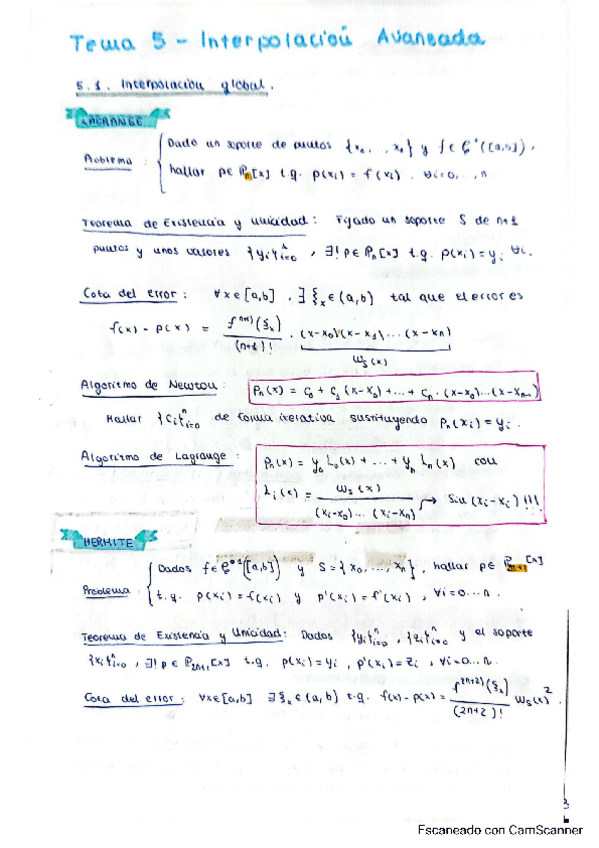 Tema 5 - Interpolación Avanzada
5.1. Interpolación global.
LAGRANGE
Dado un soporte de puntos {x₀, ..., xₙ} y f ∈ ([a,b]),
Problema :
hallar p ∈ ℙₙ[x] t.q. p(xᵢ) = f(xᵢ) . ∀i=0, .., n
Teorema de Existencia y Unicidad : Fijado un soporte S de n+1
puntos y unos valores {yᵢ}ⁿᵢ₌₀ , ∃! p ∈ ℙₙ[x] t.q. p(xᵢ) = yᵢ ∀i.
Cota del error : ∀x ∈ [a,b] . ∃ ξₓ ∈ (a,b) tal que el error es
f(x) - p(x) = f⁽ⁿ⁺¹⁾(ξₓ) / (n+1)! · (x-x₀)(x-x₁)...(x-xₙ)
Wₛ(x)
Algoritmo de Newton : pₙ(x) = c₀ + c₁ (x-x₀) + ... + cₙ · (x-x₀)...(x-xₙ₋₁)
Hallar {cᵢ}ⁿᵢ₌₀ de forma iterativa sustituyendo pₙ(xᵢ) = yᵢ.
Algoritmo de Lagrange : pₙ(x) = y₀ L₀(x) + ... + yₙ Lₙ(x) con
Lᵢ(x) = Wₛ(x) / (xᵢ-x₀)...(xᵢ-xₙ) → Sin (xᵢ-xᵢ) !!!
HERMITE
Dados f ∈ ([a,b]) y S = {x₀, ..., xₙ} , hallar p ∈ ℙ₂ₙ₊₁[x]
Problema :
t.q. p(xᵢ) = f(xᵢ) y p'(xᵢ) = f'(xᵢ) , ∀i=0...n.
Teorema de Existencia y Unicidad : Dados {yᵢ}ⁿᵢ₌₀ , {zᵢ}ⁿᵢ₌₀ y el soporte
{xᵢ}ⁿᵢ₌₀ , ∃! p ∈ ℙ₂ₙ₊₁[x] t.q. p(xᵢ) = yᵢ , p'(xᵢ) = zᵢ , ∀i=0...n.
Cota del error : ∀x∈[a,b] ∃ ξₓ ∈ (a,b) t.q. f(x) - p(x) = f⁽²ⁿ⁺²⁾(ξₓ) / (2n+2)! Wₛ(x)².
3
Escaneado con CamScanner